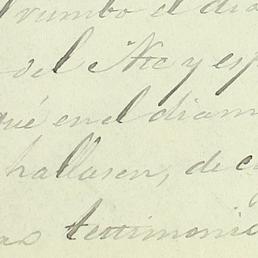 rumbo el dia
del Nte y esp
qué en el diam
hallasen, de c
as testimonio